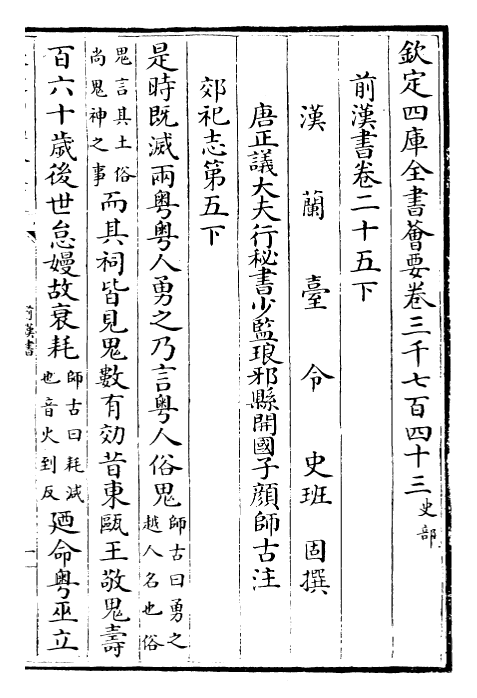 欽定四庫全書薈要卷三千七百四十三史部
前漢書卷二十五下
漢蘭臺令史班固撰
唐正議大夫行秘書少監琅邪縣開國子顏師古注
郊祀志第五下
是時既滅兩粵粵人勇之乃言粵人俗鬼師古曰勇之越人名也俗
鬼言其土俗尚鬼神之事而其祠皆見鬼數有効昔東甌王敬鬼壽
百六十歲後世怠嫚故衰耗師古曰耗減也音火到反廼命粵巫立
前漢書
一